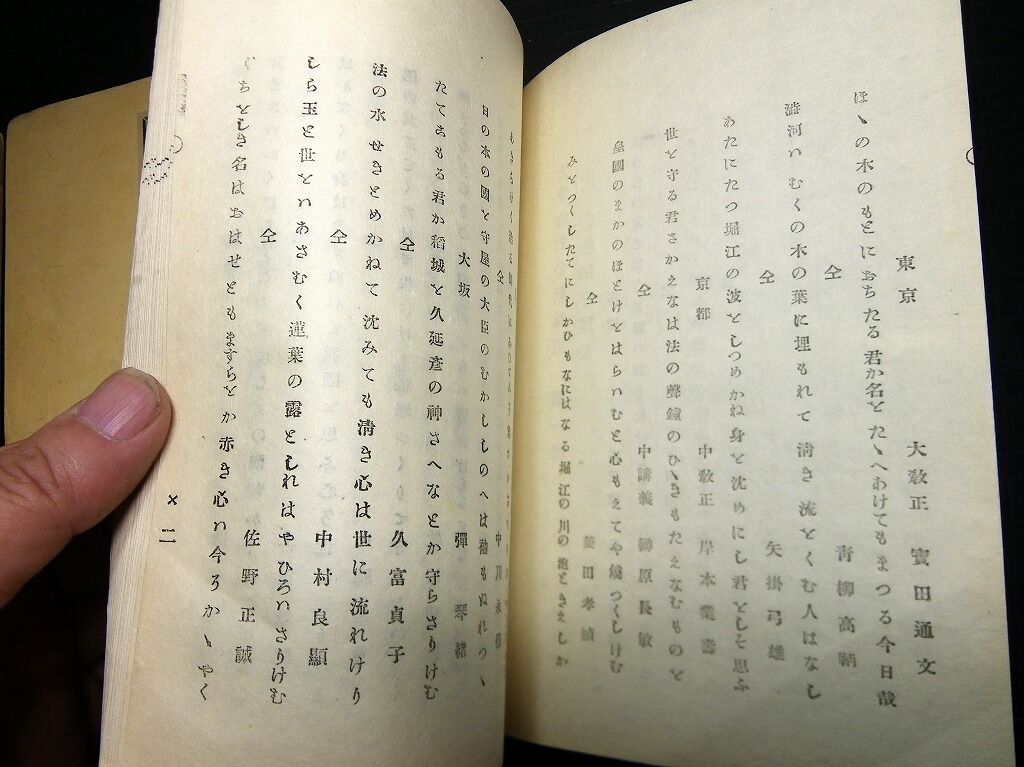 東京 大敎正 寳田通文
ほゝの木のもとにおちたる君か名をたゝへあけてもまつる今日哉
仝 靑柳高鞆
澁河いむくの木の葉に埋もれて淸き流をくむ人はなし
仝 矢掛弓雄
あたにたつ堀江の波をしつめかね身を沈めにし君をしそ思ふ
京都 中敎正 岸本業壽
世を守る君さかえなは法の聲鐘のひゝきもたえなむものを
仝 中講義 榊原長敏
皇國のまかのほとけをはらいむと心もえてや燒つくしけむ
仝 菱田孝禎
みをつくしたてにしかひもなにはなる堀江の川の泡ときえしか
仝 中川永
日の本の國を守屋の大臣のむかししのへは袖もぬれつゝ
大坂 彈琴緖
たてこもる君か稻城を久延彥の神さへなとか守らさりけむ
仝 久富貞子
法の水せきとめかねて沈みても淸き心は世に流れけり
仝 中村良顯
しら玉と世をいあさむく蓮葉の露としれはやひろいさりけむ
仝 佐野正誠
くちをしき名はおはせともますらをか赤き心い今そかゝやく
二